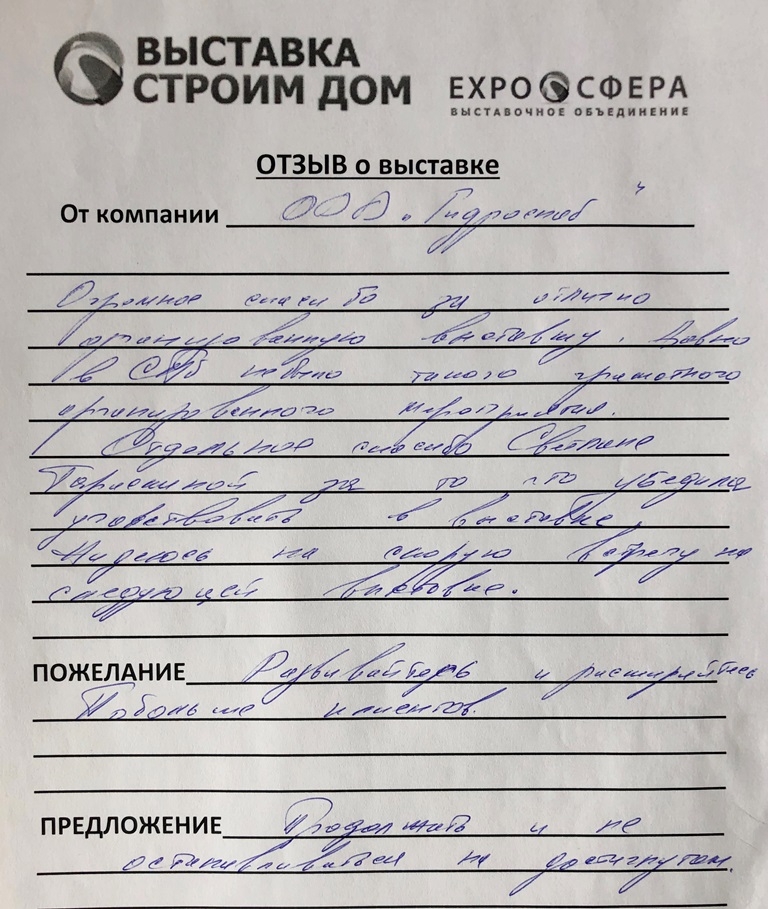 ВЫСТАВКА
СТРОИМ ДОМ
EXPO СФЕРА
ВЫСТАВОЧНОЕ ОБЪЕДИНЕНИЕ
ОТЗЫВ о выставке
От компании ООО „Гидроснаб“
Огромное спасибо за отлично
организованную выставку. Давно
в СПб небыло такого грамотного
организованного мероприятия.
Отдельное спасибо Светлане
за то что убедила
участвовать в выставке.
Надеюсь на скорую встречу на
следующей выставке.
ПОЖЕЛАНИЕ Развивайтесь и расширяйтесь
Побольше клиентов.
ПРЕДЛОЖЕНИЕ Продолжать и не
останавливаться на достигнутом.